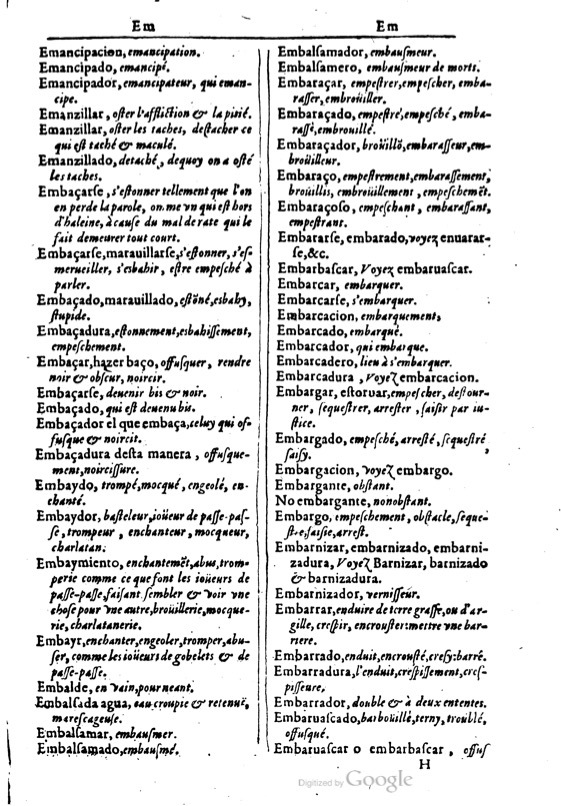 Em
Em
Emancipacion, emancipation.
Emancipado, emancipé.
Emancipador, emancipateur, qui eman-
cipe.
Emanzillar, oster l'affliction & la pitié.
Emanzillar, oster les taches, destacher ce
qui est taché & maculé.
Emanzillado, detaché, dequoy on a osté
les taches.
Embaçarse, s'estonner tellement que l'on
en perde la parole, on me vn qui est hors
d'haleine, à cause du mal de rate qui le
fait demeurer tout court.
Embaçarse, marauillarse, s'estonner, s'es-
merueiller, s'esbahir, estre empesché à
parler.
Embaçado, marauillado, estōné, esbahy,
stupide.
Embaçadura, estonnement, esbahissement,
empeschement.
Embaçar, hazer baço, offusquer, rendre
noir & obscur, noircir.
Embaçarse, deuenir bis & noir.
Embaçado, qui est deuenu bis.
Embaçador el que embaça, celuy qui of-
fusque & noircit.
Embaçadura desta manera, offusque-
ment, noircissure.
Embaydo, trompé, mocqué, engeolé, en-
chanté.
Embaydor, basteleur, ioüeur de passe-pas-
se, trompeur, enchanteur, mocqueur,
charlatan.
Embaymiento, enchantemēt, abus, trom-
perie comme ce que font les ioüeurs de
passe-passe, faisant sembler & voir vne
chose pour vne autre, broüillerie, mocque-
rie, charlatanerie.
Embayr, enchanter, engeoler, tromper, abu-
ser, comme les ioüeurs de gobelets & de
passe-passe.
Embalde, en vain, pour neant.
Embalsada agua, eau croupie & retenuë,
marescageuse.
Embalsamar, embausmer.
Embalsamado, embausmé.
Embalsamador, embausmeur.
Embalsamero, embausmeur de morts.
Embaraçar, empestrer, empescher, emba-
rasser, embroüiller.
Embaraçado, empestré, empesché, emba-
rassé, embrouillé.
Embaraçador, broüillō, embarasseur, em-
broüilleur.
Embaraço, empestrement, embarassement,
broüillis, embroüillement, empeschemēt.
Embaraçoso, empeschant, embarassant,
empestrant.
Embararse, embarado, voyez enuarar-
se, &c.
Embarbascar, Voyez embaruascar.
Embarcar, embarquer.
Embarcarse, s'embarquer.
Embarcacion, embarquement,
Embarcado, embarqué.
Embarcador, qui embarque.
Embarcadero, lieu à s'embarquer.
Embarcadura, Voyez embarcacion.
Embargar, estoruar, empescher, destour-
ner, sequestrer, arrester, saisir par iu-
stice.
Embargado, empesché, arresté, sequestré
saisy.
Embargacion, voyez embargo.
Embargante, obstant.
No embargante, nonobstant.
Embargo, empeschement, obstacle, seque-
stre, saisie, arrest.
Embarnizar, embarnizado, embarni-
zadura, Voyez Barnizar, barnizado
& barnizadura.
Embarnizador, vernisseur.
Embarrar, enduire de terre grasse, ou d'ar-
gille, crespir, encrouster: mettre vne bar-
riere.
Embarrado, enduit, encrousté, cresy: barré.
Embarradura, l'enduit, crespissement, cres-
pissure,
Embarrador, double & à deux ententes.
Embaruascado, barboüillé, terny, troublé,
offusqué.
Embaruascar o embarbascar, offus
H
Digitized by Google